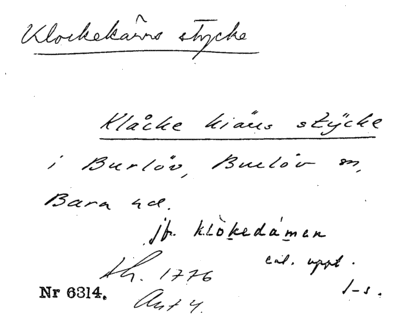 Klockekärrs stycke
Klåcke kiäus stÿcke
i Burlöv, Burlöv sn,
Bara hd.
jfr. klòkedámen
enl. uppt.
lh. 1776
Nr 6314.
Ant 4.